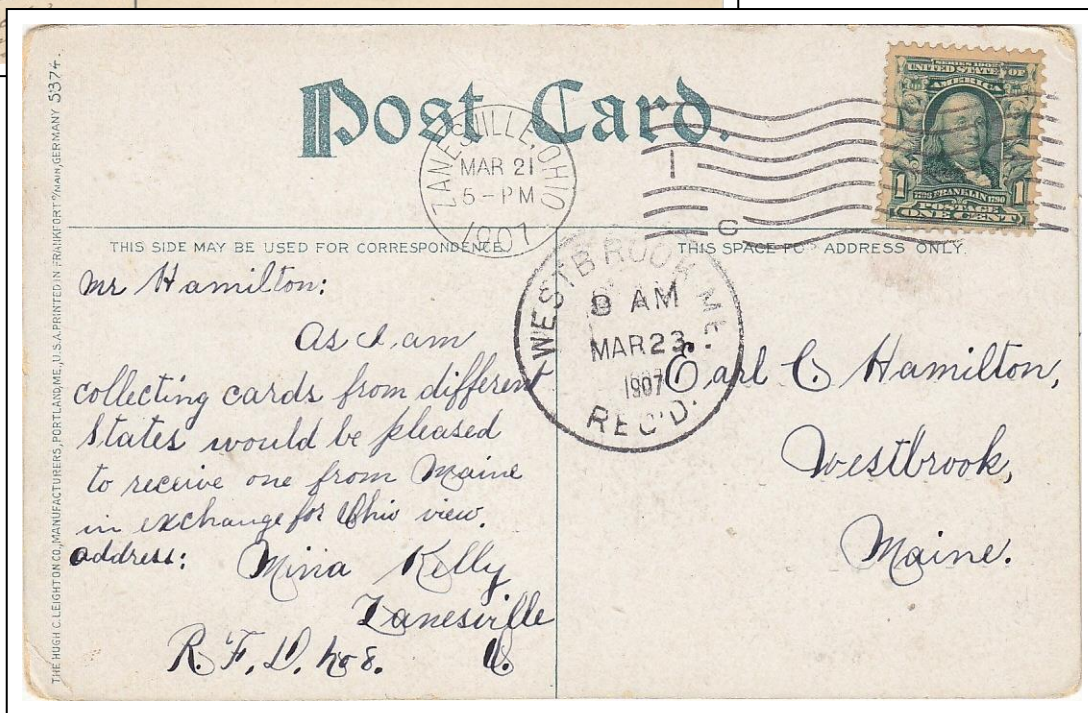 THE HUGH C. LEIGHTON CO., MANUFACTURERS, PORTLAND, ME., U.S.A. PRINTED IN FRANKFORT o/MAIN, GERMANY 5374.
Post Card.
ZANESVILLE, OHIO
MAR 21
5-PM
1907
1
C
SERIES 1902
UNITED STATES OF
AMERICA
1 FRANKLIN 1790 1
POSTAGE
ONE CENT
THIS SIDE MAY BE USED FOR CORRESPONDENCE.
THIS SPACE FOR ADDRESS ONLY.
WESTBROOK, ME.
9 AM
MAR 23
1907
REC'D.
Mr Hamilton:
As I am
collecting cards from different
States would be pleased
to receive one from Maine
in exchange for Ohio view.
address: Mina Kelly
Zanesville
R. F. D. No 8. O.
Earl C. Hamilton,
Westbrook,
Maine.